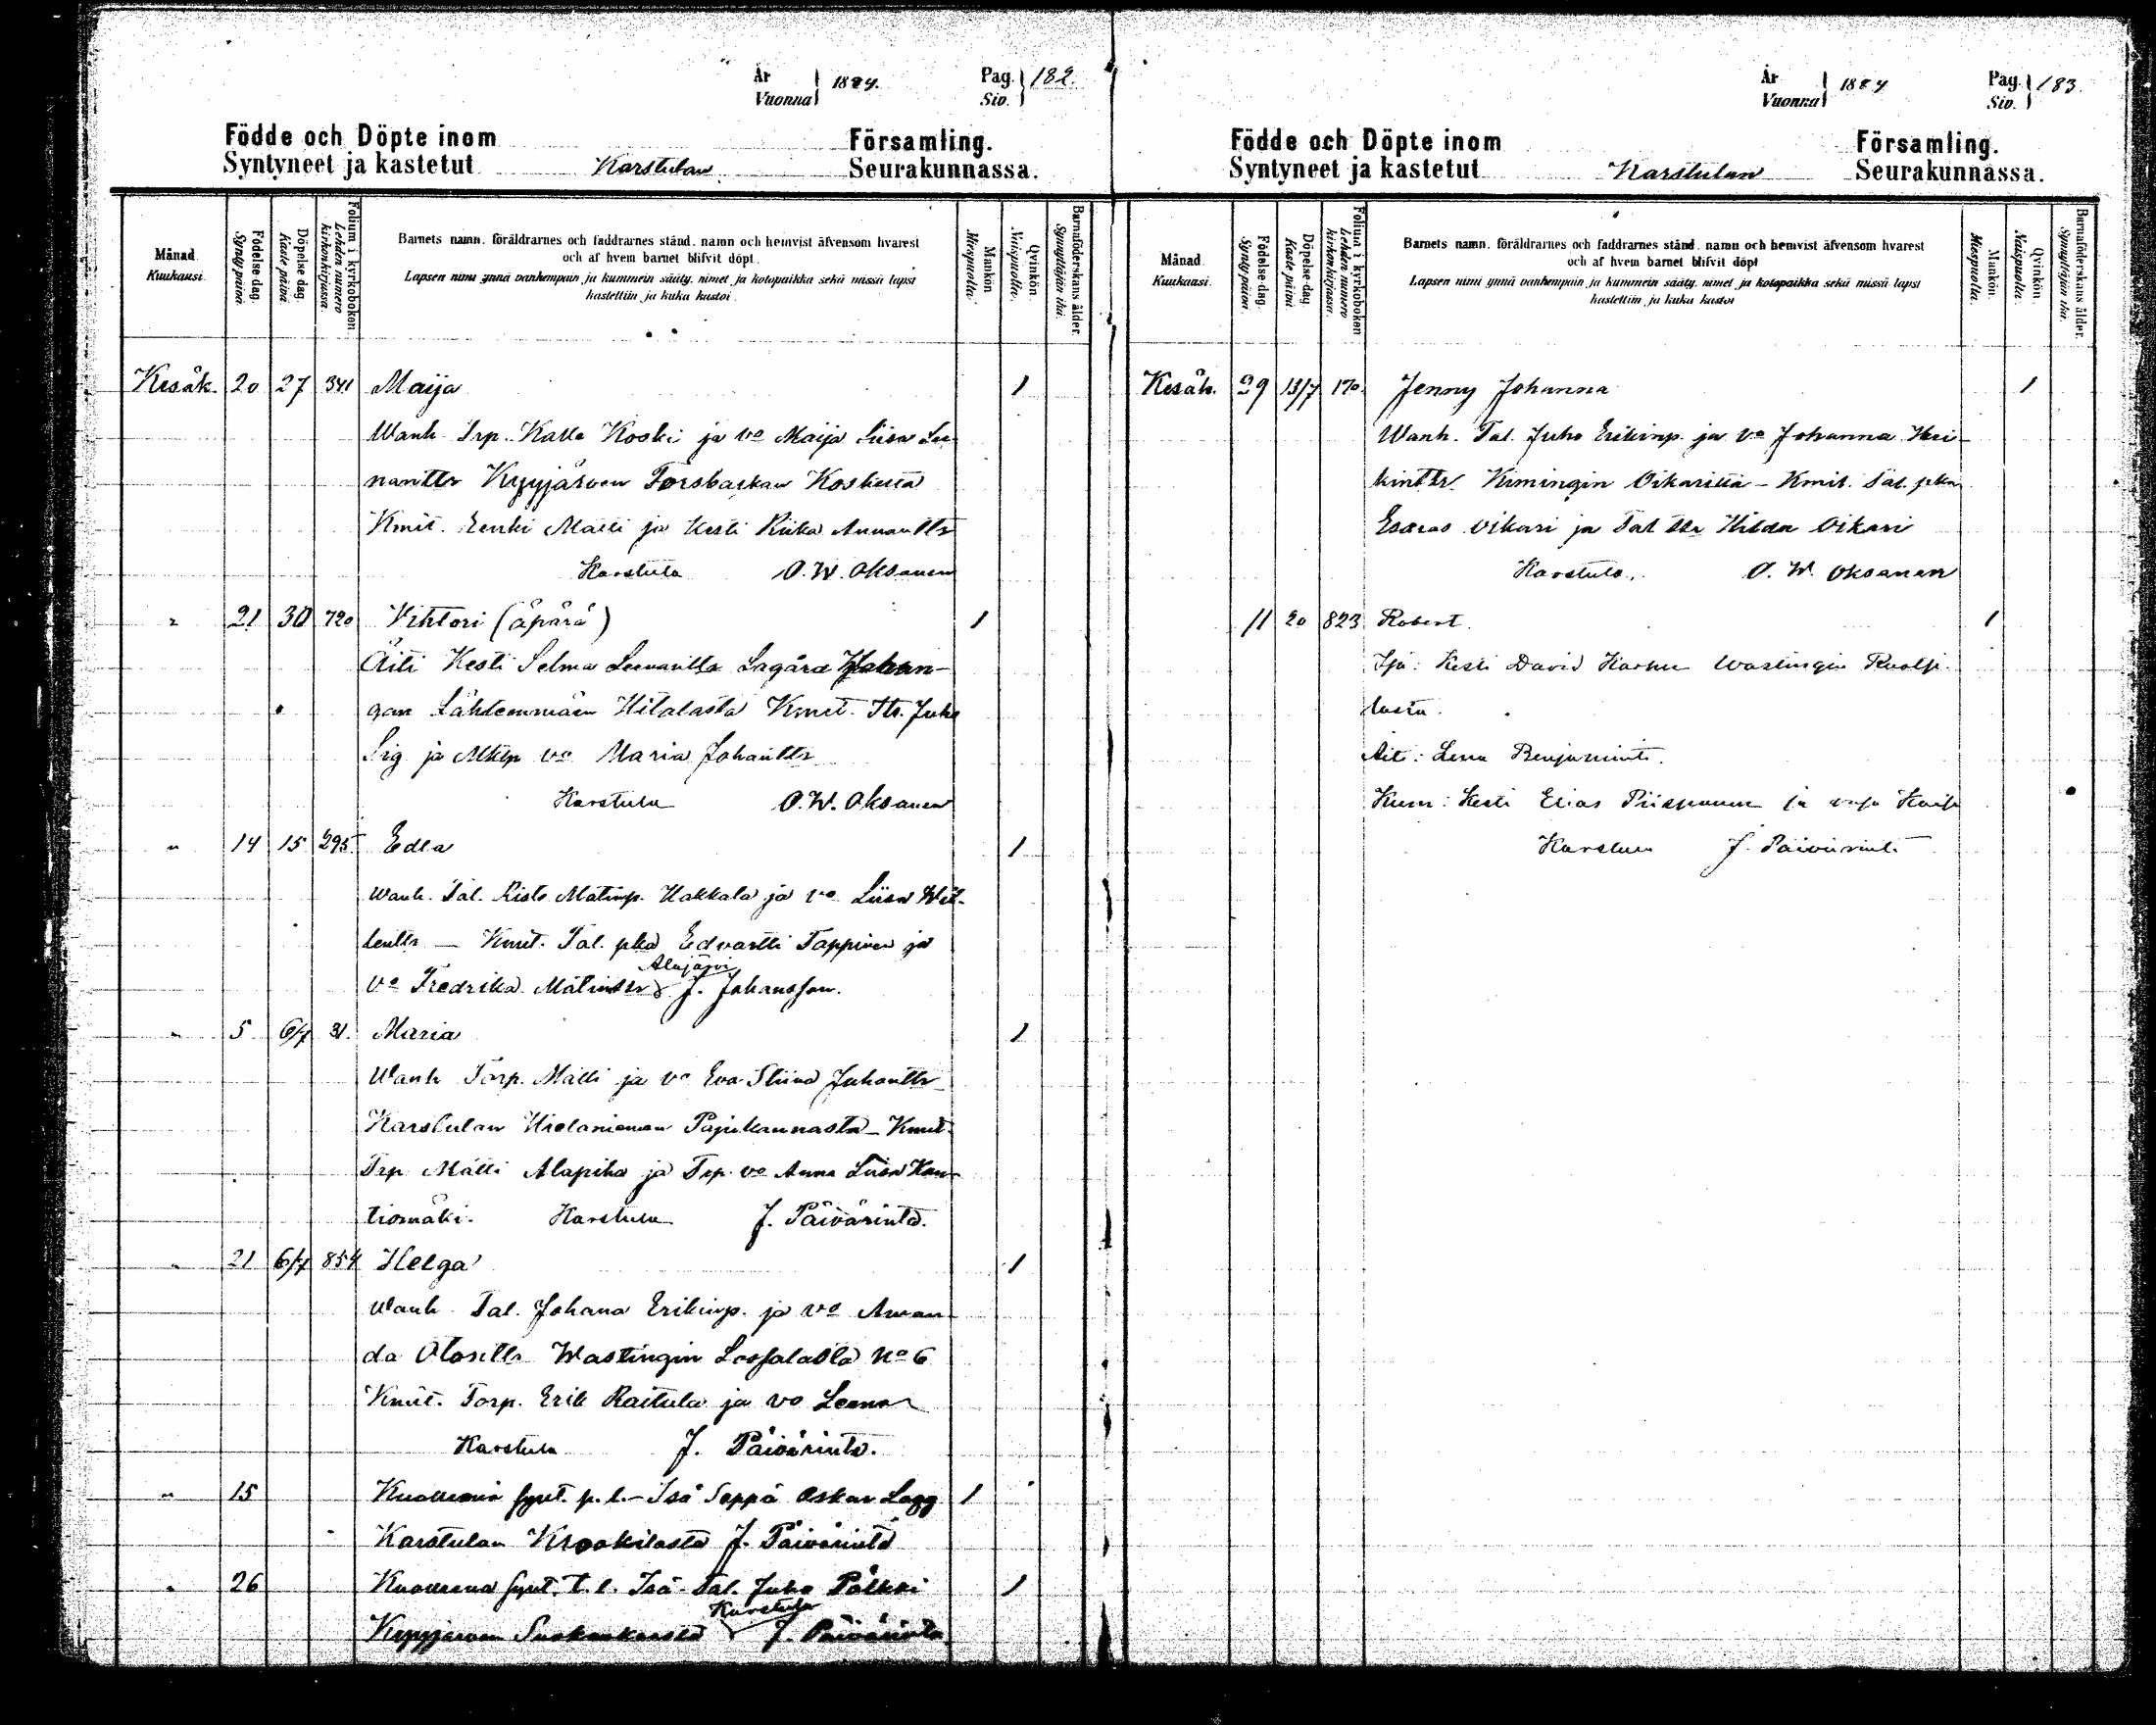 År
Vuonna
1884.
Pag.
Siv.
182.
Födde och Döpte inom Församling.
Syntyneet ja kastetut Karstulan Seurakunnassa.
Månad
Kuukausi.
Födelse dag.
Synty päivä
Döpelse dag.
Kaste päivä
Folium i kyrkobokon.
Lehden numero kirkonkirjassa.
Barnets namn, föräldrarnes och faddrarnes stånd, namn och hemvist äfvensom hvarest
och af hvem barnet blifvit döpt.
Lapsen nimi ynnä vanhempain ja kummein sääty, nimet ja kotopaikka sekä missä lapsi
kastettiin ja kuka kastoi.
Mankön
Miespuolia.
Qvinkön
Naispuolia.
Barnaföderskans ålder.
Synnyttäjän ikä.
Kesäk. 20 27 341 Maija 1
Wanh. Trp. Kalle Koski ja vo Maija Liisa Lee-
nanttr Kyyjärven Forsbackan Koskesta
Kmit. Renki Matti ja Kesti Riika Annanttr
Karstula O. W. Oksanen
" 21 30 720 Vihtori (äpärä) 1
Äiti Kesti Selma Leenantta
Kmit. Its. Juho
Sig ja Mkip vo Maria Johanttr
Karstula O. W. Oksanen
" 14 15 295 Edla 1
Wanh. Tal. Risto Matinp. Hakkala ja vo Liisa Wil-
lenttr — Kmit. Tal. pka Edvartti Tappinen ja
Alajärvi
vo Fredrika Matinttr J. Johansson.
" 5 6/7 31. Maria 1
Wanh Torp. Matti ja vo Eva Stiina Juhanttr
Karstulan Hietaniemen Pajukannasta — Kmit.
Trp Matti Alapiha ja Trp. vo Anna Liisa Kan-
tiomäki. Karstula J. Päivärinta.
" 21 6/7 854 Helga 1
Wanh. Tal. Johana Erikinp. ja vo Aman-
da Olosttr Wastingin No 6
Kmit. Torp. Erik Raitula ja vo Leena
Karstula J. Päivärinta.
" 15 Kuolleena synt. p. l. — Isä Seppä Oskar Lagg 1
Karstulan Krookilasta J. Päivärinta
" 26 Kuolleena synt. t. l. Isä Tal. Juho Pölkki 1
Karstula
Kyyjärven J. Päivärinta
År
Vuonna
1884
Pag.
Siv.
183.
Födde och Döpte inom Församling.
Syntyneet ja kastetut Karstulan Seurakunnassa.
Månad
Kuukausi.
Födelse-dag.
Synty päivä.
Döpelse-dag.
Kaste päivä
Folium i kyrkoboken.
Lehden numero kirkonkirjassa.
Barnets namn, föräldrarnes och faddrarnes stånd, namn och hemvist äfvensom hvarest
och af hvem barnet blifvit döpt
Lapsen nimi ynnä vanhempain ja kummein sääty, nimet ja kotopaikka sekä missä lapsi
kastettiin ja kuka kastoi
Mankön.
Miespuolia.
Qvinkön.
Naispuolia.
Barnaföderskans ålder.
Synnyttäjän ikä.
Kesäk. 29 13/7 170. Jenny Johanna 1
Wanh. Tal. Juho Erikinp. ja vo Johanna Hei-
kinttr. Kimingin Oikarista — Kmit. Tal. pka
Esaias Oikari ja Tal ttr Hilda Oikari
Karstula. O. W. Oksanen
11 20 823 Robert. 1
Isä: Kesti David Wastingin
lasta.
Äiti: Lena Benjamint.
Kum: Kesti Elias Piispanen ja
Karstula J. Päivärinta